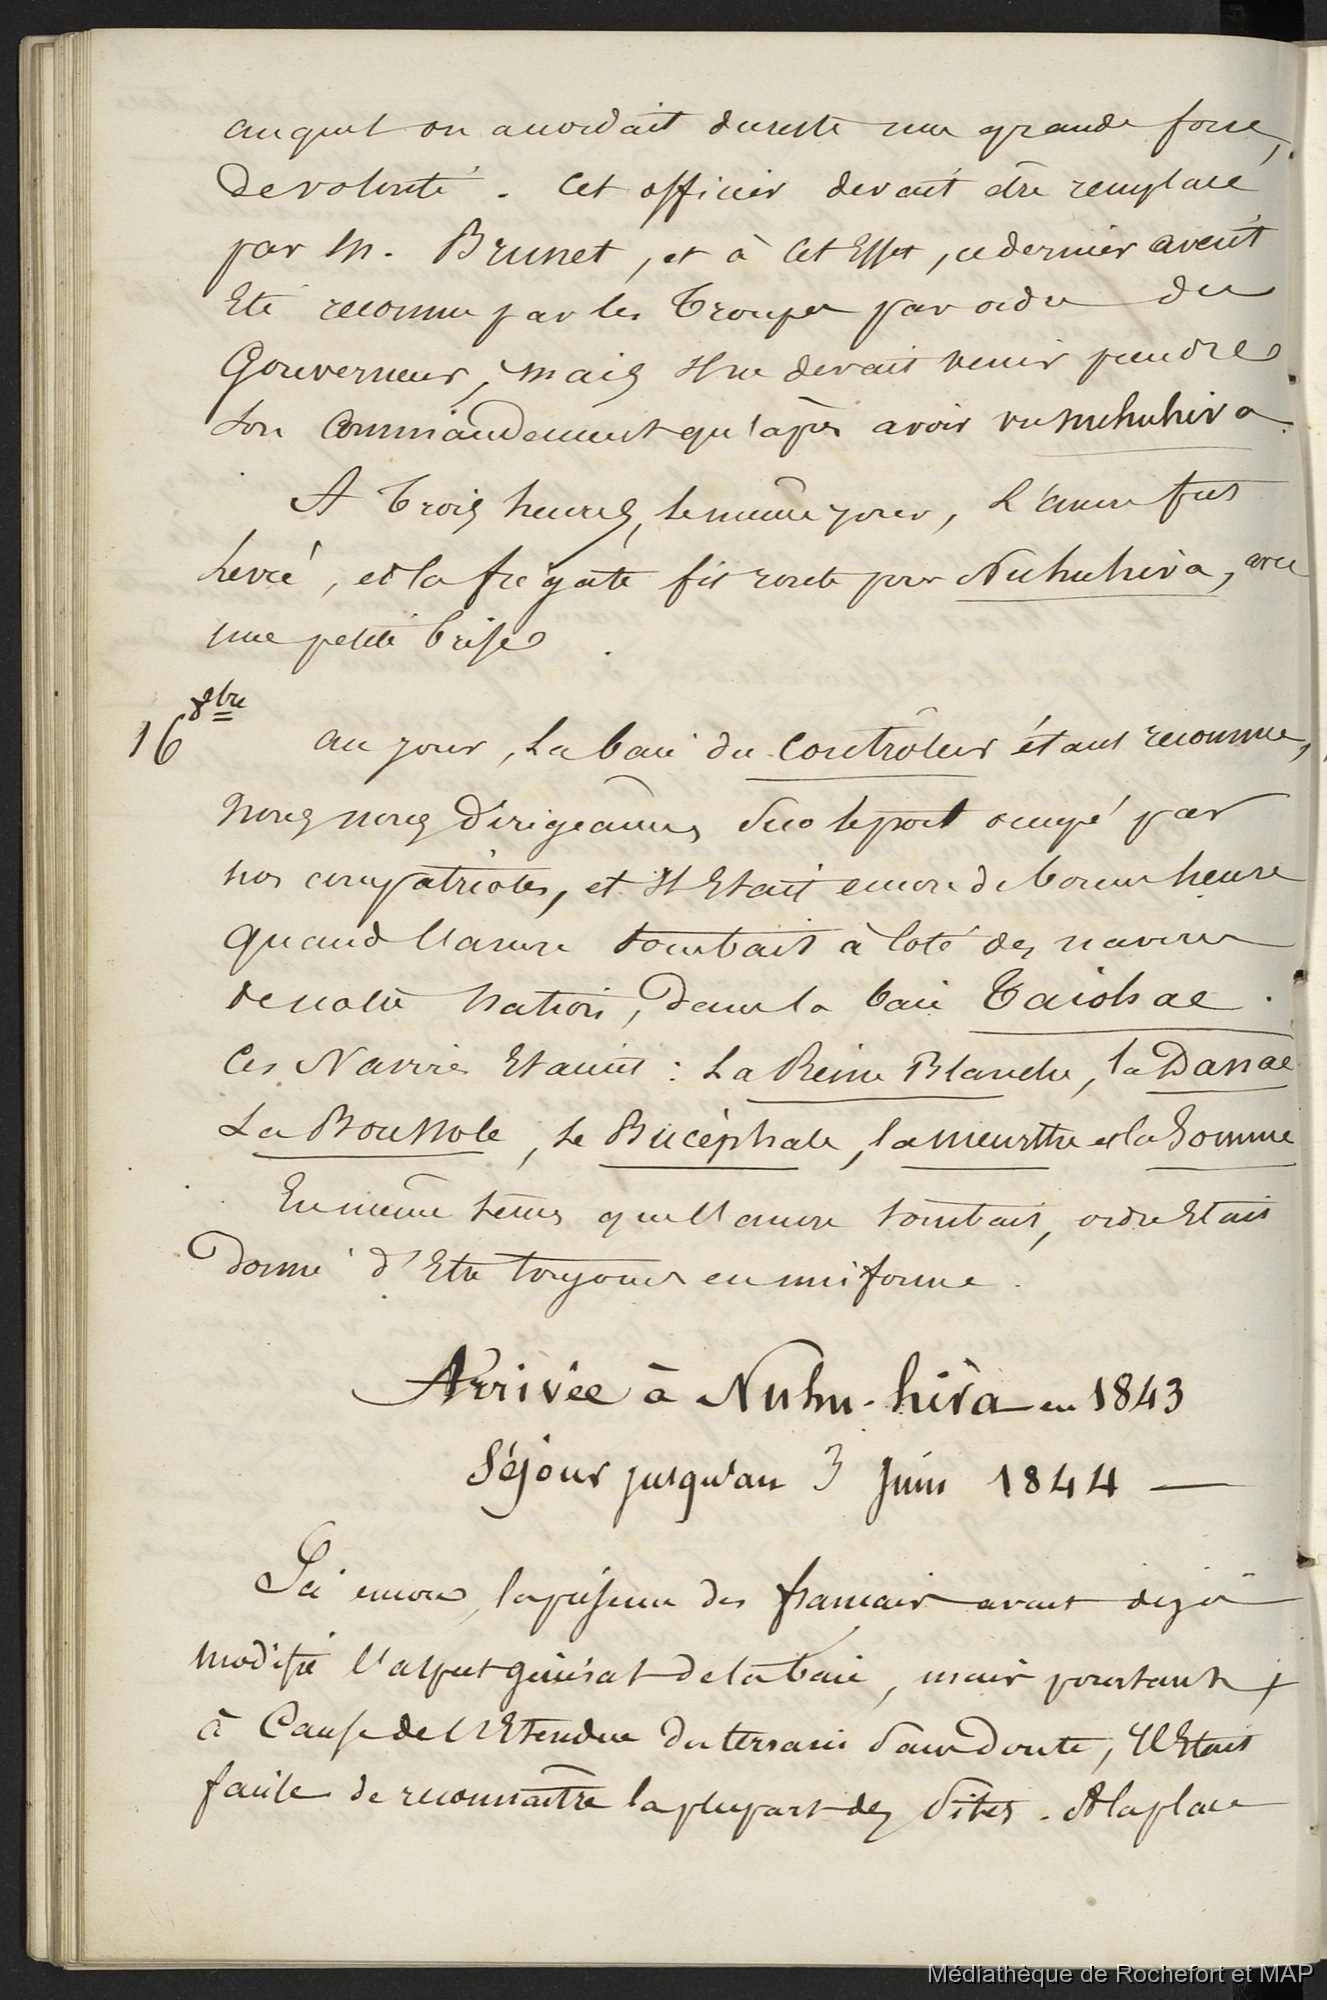 auquel on accordait dureste une grande force,
de volonté. Cet officier devait être remplacé
par M. Brunet, et à cet Effet, ce dernier avait
Eté reconnu par les Troupes par ordre du
Gouverneur, mais Il ne devait venir prendre
son Commandement qu'après avoir vu Nuhuhiva.
A trois heures, le même jour, L'ancre fut
levée, et la frégate fit route pour Nuhuhiva, avec
une petite brise.
16 8bre au jour, La baie du Contrôleur étant reconnue,
nous nous dirigeâmes sur le port occupé par
nos compatriotes, et Il Etait encore de bonne heure
quand l'ancre tombait à coté des navires
de notre Nation, dans la baie Taiohae.
Ces Navires Etaient : La Reine Blanche, la Danaé
La Boussole, le Bucéphale, la Meurthe et la Somme
En même tems que l'ancre tombait, ordre Etait
donné d'Etre toujours en uniforme.
Arrivée à Nuhu-hiva en 1843
Séjour jusqu'au 3 Juin 1844 —
Ici encore, la présence des francais avait déjà
modifié l'aspect général de la baie, mais pourtant
à Cause de l'Etendue du terrain sans doute, Il Etait
facile de reconnaître la plupart des Sites. A la place
Médiathèque de Rochefort et MAP